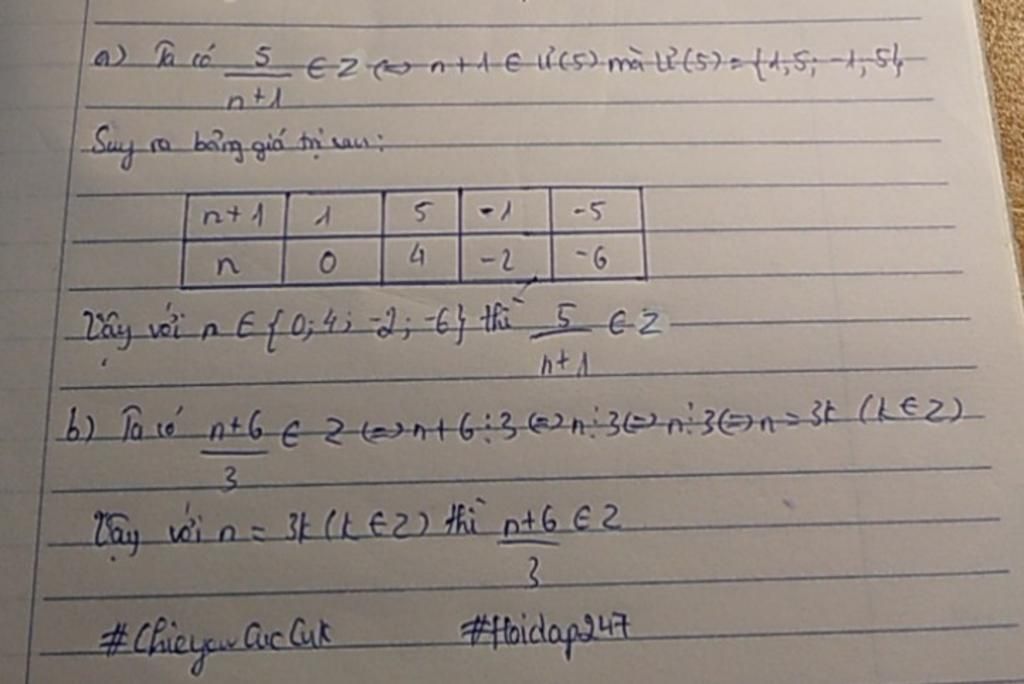 a) Ta có 5/n+1 ∈ Z ⇔ n+1 ∈ Ư(5) mà Ư(5) = {1; 5; -1; -5}
Suy ra bảng giá trị sau:
n+1 1 5 -1 -5
n 0 4 -2 -6
Vậy với n ∈ {0; 4; -2; -6} thì 5/n+1 ∈ Z
b) Ta có n+6/3 ∈ Z ⇔ n+6⋮3 ⇔ n⋮3 ⇔ n⋮3 ⇔ n = 3k (k ∈ Z)
Vậy với n = 3k (k ∈ Z) thì n+6/3 ∈ Z
#ChieyewCucCuk #Hoidap247